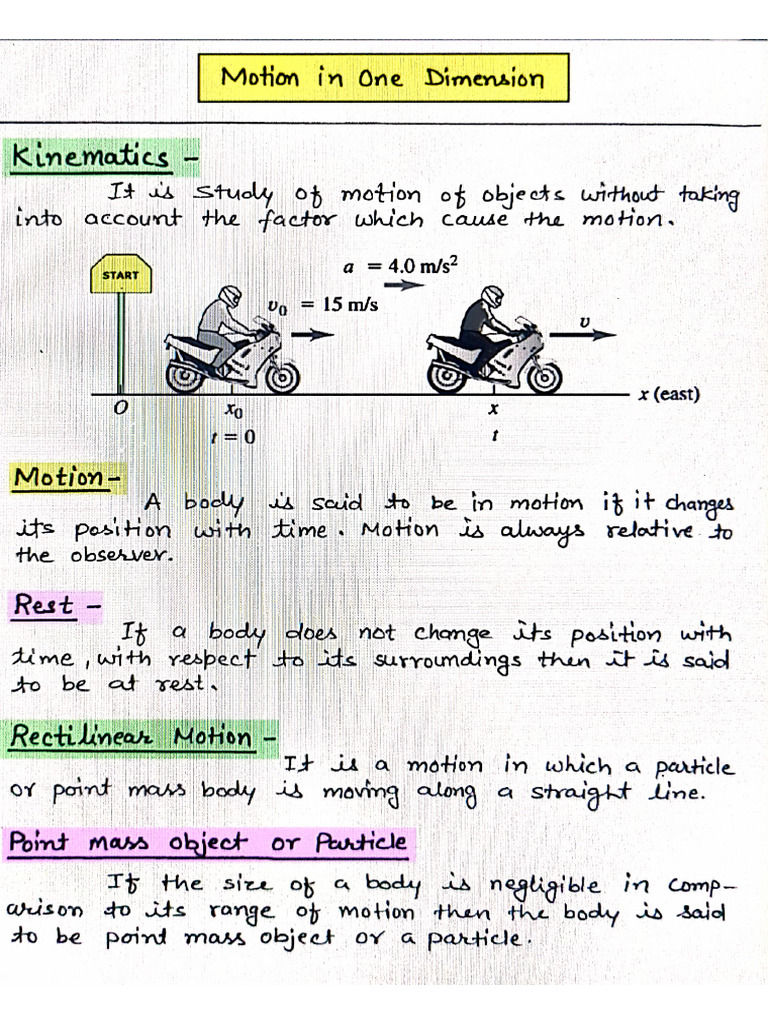 Motion in One Dimension
Kinematics -
It is study of motion of objects without taking
into account the factor which cause the motion.
START
a = 4.0 m/s²
v₀ = 15 m/s
v
x (east)
O
x₀
x
t = 0
t
Motion -
A body is said to be in motion if it changes
its position with time. Motion is always relative to
the observer.
Rest -
If a body does not change its position with
time, with respect to its surroundings then it is said
to be at rest.
Rectilinear Motion -
It is a motion in which a particle
or point mass body is moving along a straight line.
Point mass object or Particle
If the size of a body is negligible in comp-
arison to its range of motion then the body is said
to be point mass object or a particle.